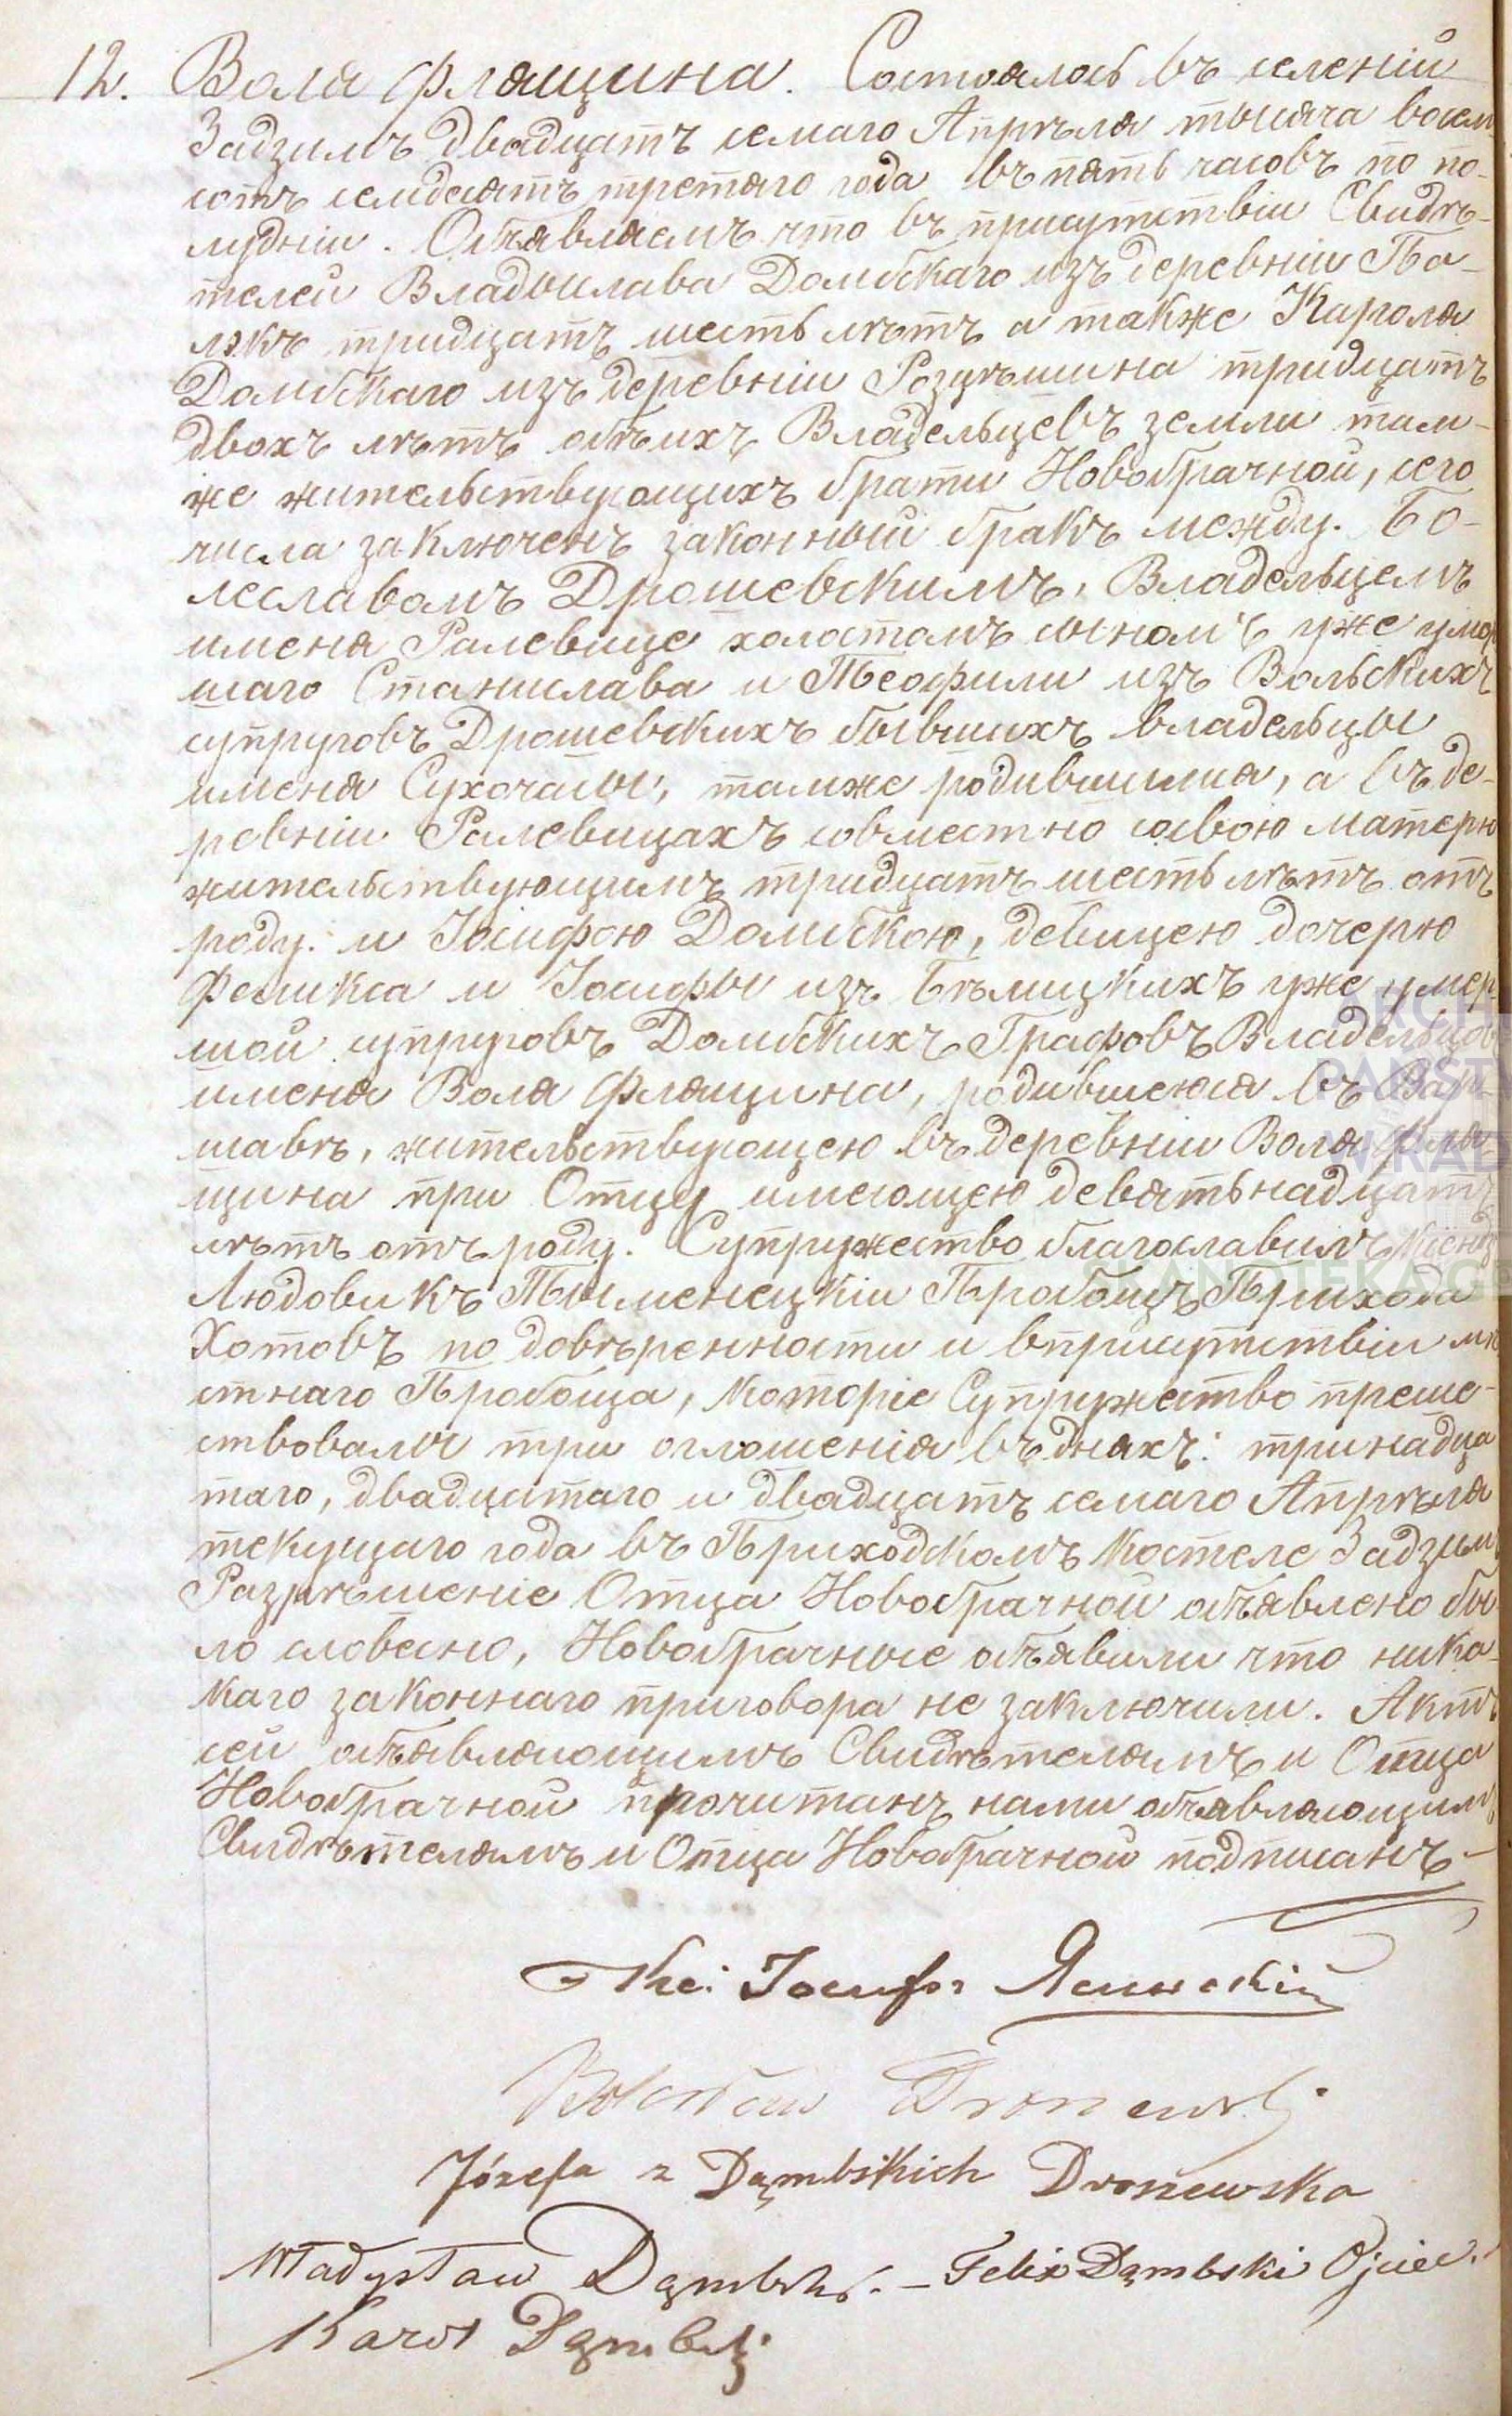 12. Воля Флящина. Состоялось въ селеніи
Задзимъ двадцатъ семаго Апрѣля тысяча восем
сотъ семдесятъ третяго года въ пять часовъ по по-
лудніи. Объявляемъ что въ присутствіи Свидѣ-
телей Владыслава Домбскаго изъ деревніи Па-
лэкъ тридцатъ шесть лѣтъ а также Кароля
Домбскаго изъ деревніи тридцатъ
двохъ лѣтъ обѣихъ Владельцевъ земли там-
же жительствующихъ брати Новобрачной, сего
числа заключенъ законный бракъ между. Бо-
леславомъ Дрошевскимъ, Владельцемъ
имена Ралевице холостомъ сыномъ уже умер
шаго Станислава и Теофили изъ Вольскихъ
супруговъ Дрошевскихъ бывшихъ владельцы
имена Сухочасы, тамже родившимся, а въ де-
ревніи Ралевицахъ совместно со свою матерю
жительствующимъ тридцатъ шесть лѣтъ отъ
роду. и Іосифою Домбскою, девицею дочерю
Феликса и Іосифы изъ Бѣлицкихъ уже умер-
шой супруговъ Домбскихъ Графовъ Владельцов
имена Воля Флящина, родившеюся въ Вар-
шавѣ, жительствующею въ деревніи Воля Фля-
щина при Отцу имеющею девятьнадцатъ
лѣтъ отъ роду. Супружество благославилъ Ксендз
Людовикъ Тыменецкіи Пробощъ Прихода
Хотовъ по довѣренности и вприсутствіи мѣ
стнаго Пробоща, которіе Супружество преше-
ствовалы три оглошенія въ днях: тринадца
таго, двадцатаго и двадцатъ семаго Апрѣля
текущаго года въ Приходскомъ Костеле Задзим
Разрѣшеніе Отца Новобрачной объявлено бы-
ло словесно, Новобрачные объявили что нико-
каго законнаго приговора не заключили. Актъ
сей объявляющимъ Свидѣтелямъ и Отца
Новобрачной прочитанъ нами объявляющимъ
Свидѣтелямъ и Отца Новобрачной подписанъ —
Кс: Іосифъ Ясинскій
Bolesław Droszewski
Józefa z Dąmbskich Droszewska
Władysław Dąmbski. – Felix Dąmbski Ojciec.
Karol Dąmbski